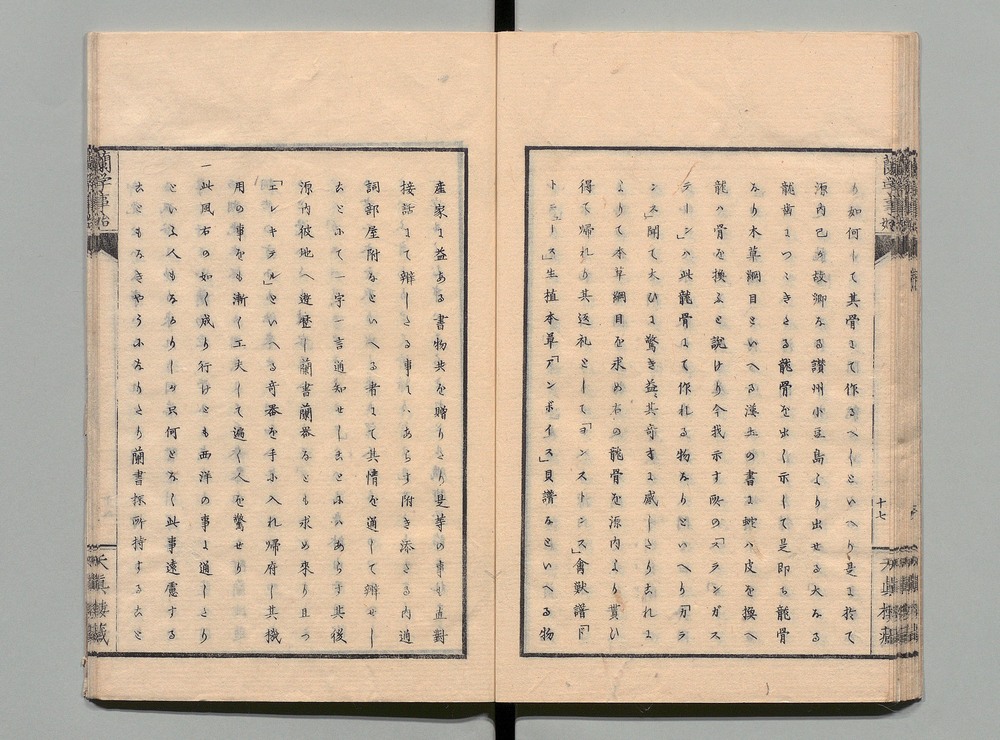 り如何して其骨にて作るへしといへり是に於て
源内己か故郷なる讃州小豆島より出せる大なる
龍歯につゝきたる龍骨を出し示して是即ち龍骨
なり本草綱目といへる漢土の書に蛇ハ皮を換へ
龍ハ骨を換ふと説けり今我示す所の「スランガス
テーン」ハ此龍骨にて作れる物なりといへり「カラ
ンス」聞て大ひに驚き益其奇才に感したりこれに
よりて本草綱目を求め右の龍骨を源内より貰ひ
得て帰れり其返礼として「ヨンストンス」禽獣譜「ド
トニュース」生植本草「アンボイス」貝譜なといへる物
産家に益ある書物共を贈りたり是等の事も直對
接話にて辨したる事にハあらす附き添たる内通
詞部屋附なといへる者にて其情を通して辨せし
ことにて一字一言通知せしことにハあらす其後
源内彼地へ遊歴し蘭書蘭器なとも求め來り且つ
「エレキテル」といへる奇器を手に入れ帰府し其機
用の事をも漸く工夫して遍く人を驚せり
一此風右の如く成り行けとも西洋の事に通したり
といふ人もなかりしか只何となく此事遠慮する
こともなきやうになりたり蘭書抔所持すること
蘭学事始
天真楼蔵
十七